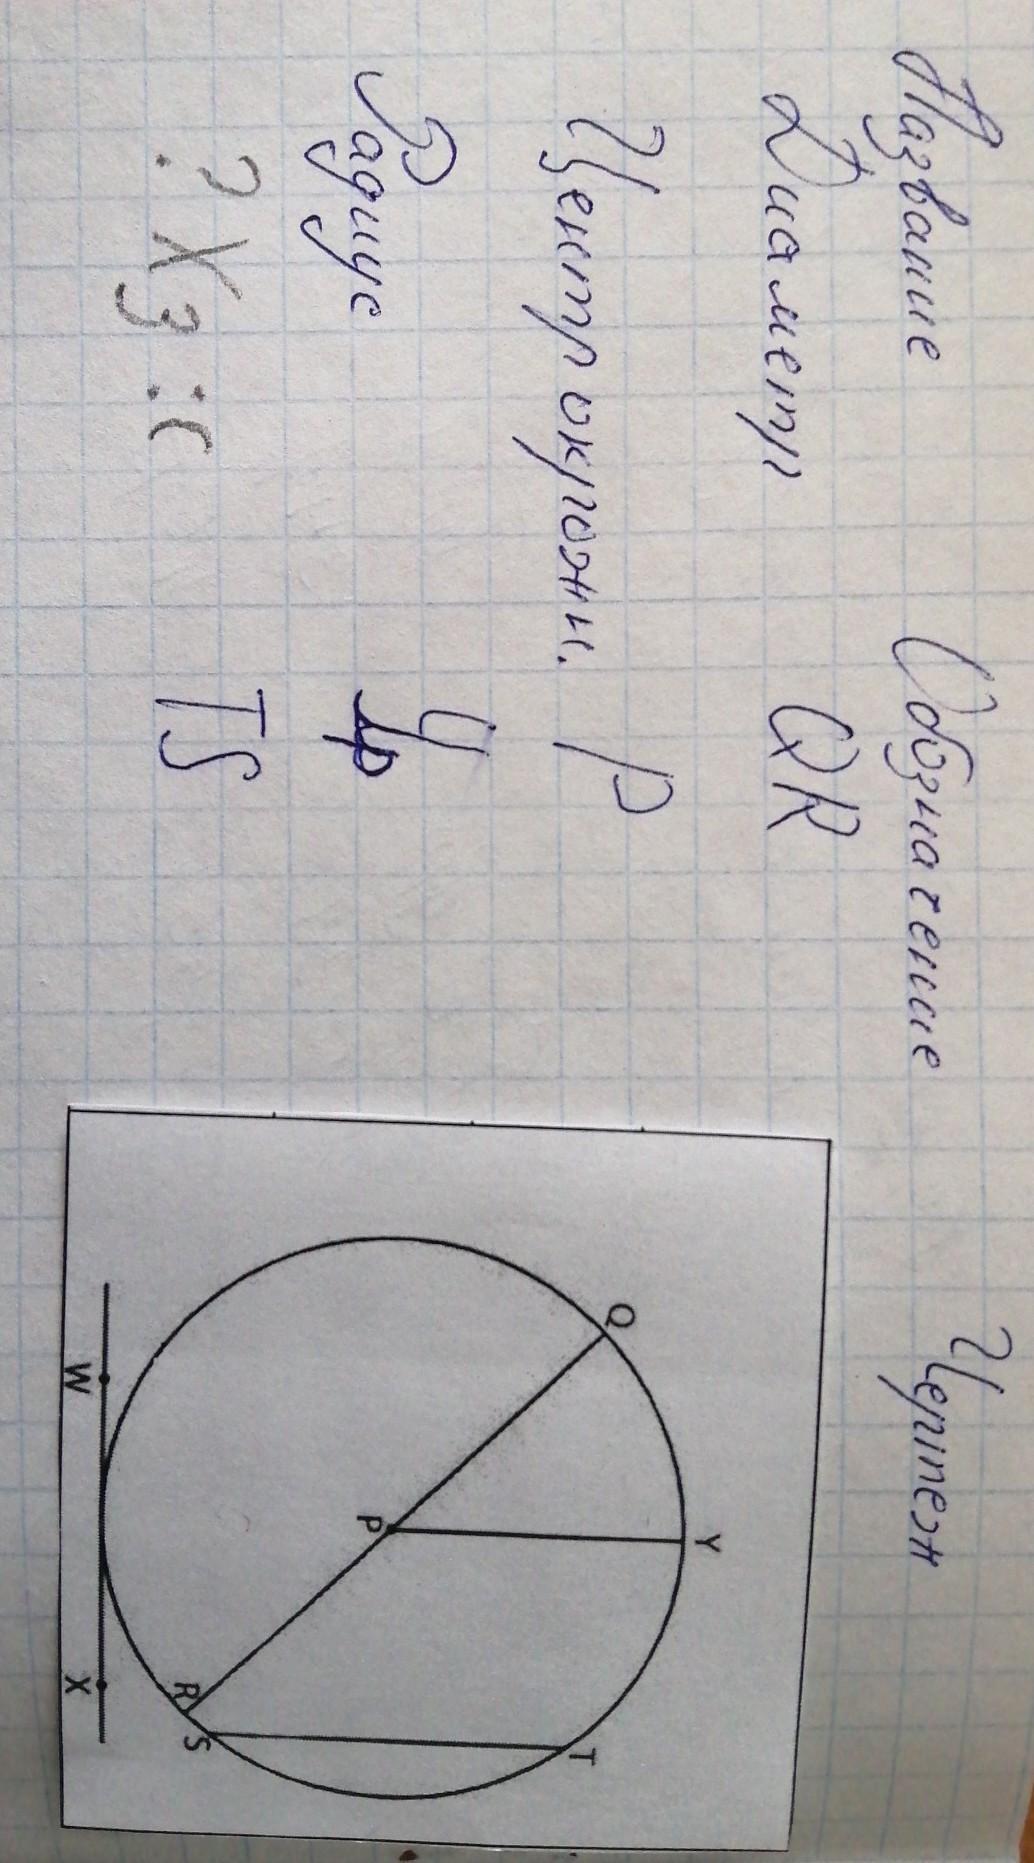 Название Обозначение Чертеж
Диаметр QR
Центр окружн. P
Радиус
? Хз :с TS
Q
Y
P
T
R
S
W
X